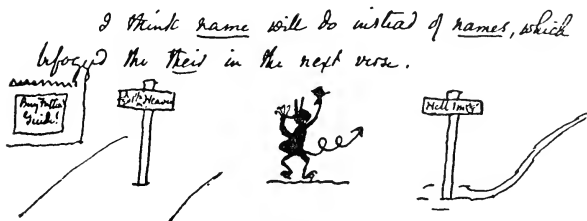 I think name will do instead of names, which
befogged the their in the next verse.
Buy
Guide!
Heaven
Hell